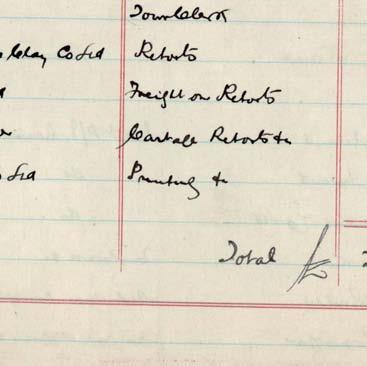 Town Clerk
Clay Co Ltd Retorts
Freight on Retorts
Cartage Retorts &c
Ltd Printing &c
Total